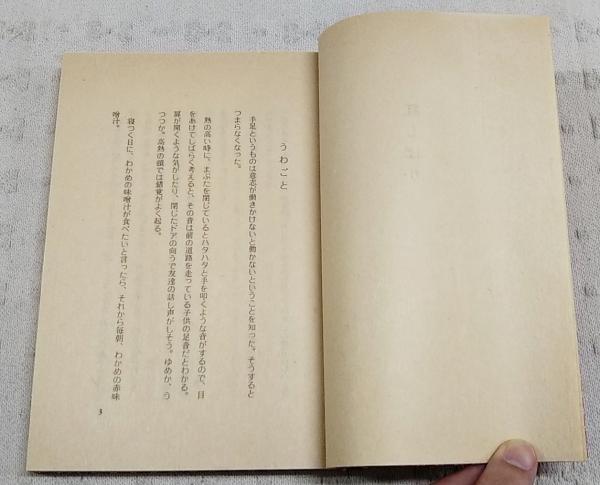 うわごと
手足というものは意志が働きかけないと動かないということを知った。そうすると
つまらなくなった。
熱の高い時に、まぶたを閉じているとハタハタと手を叩くような音がするので、目
をあけてしばらく考えると、その音は前の道路を走っている子供の足音だとわかる。
扉が開くような気がしたり、閉じたドアの向うで友達の話し声がしそう。ゆめか、う
つつか。高熱の頭では錯覚がよく起る。
寝つく日に、わかめの味噌汁が食べたいと言ったら、それから毎朝、わかめの赤味
噌汁。
3